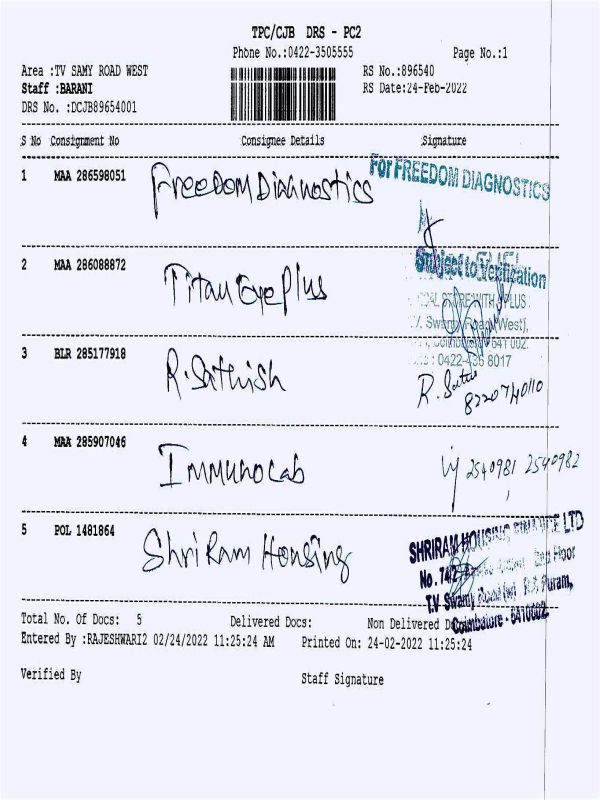 TPC/CJB DRS - PC2
Phone No.:0422-3505555 Page No.:1
Area :TV SAMY ROAD WEST RS No.:896540
Staff :BARANI RS Date:24-Feb-2022
DRS No. :DCJB89654001
S No Consignment No Consignee Details Signature
1 MAA 286598051 Freedom Diagnostics For FREEDOM DIAGNOSTICS
2 MAA 286088872 Titan Eye Plus Subject to Verification
PLUS
Swamy Road West),
641 002.
0422-435 8017
3 BLR 285177918 R. Sathish R. Sathis
8220740110
4 MAA 285907046 Immunolab 2540981 2540982
5 POL 1481864 Shri Ram Housing SHRIRAM HOUSING FINANCE LTD
No. 74/2, 2nd Floor
T.V Swamy Road (w), R.S Puram,
Coimbatore - 641002.
Total No. Of Docs: 5 Delivered Docs: Non Delivered
Entered By :RAJESHWARI2 02/24/2022 11:25:24 AM Printed On: 24-02-2022 11:25:24
Verified By Staff Signature